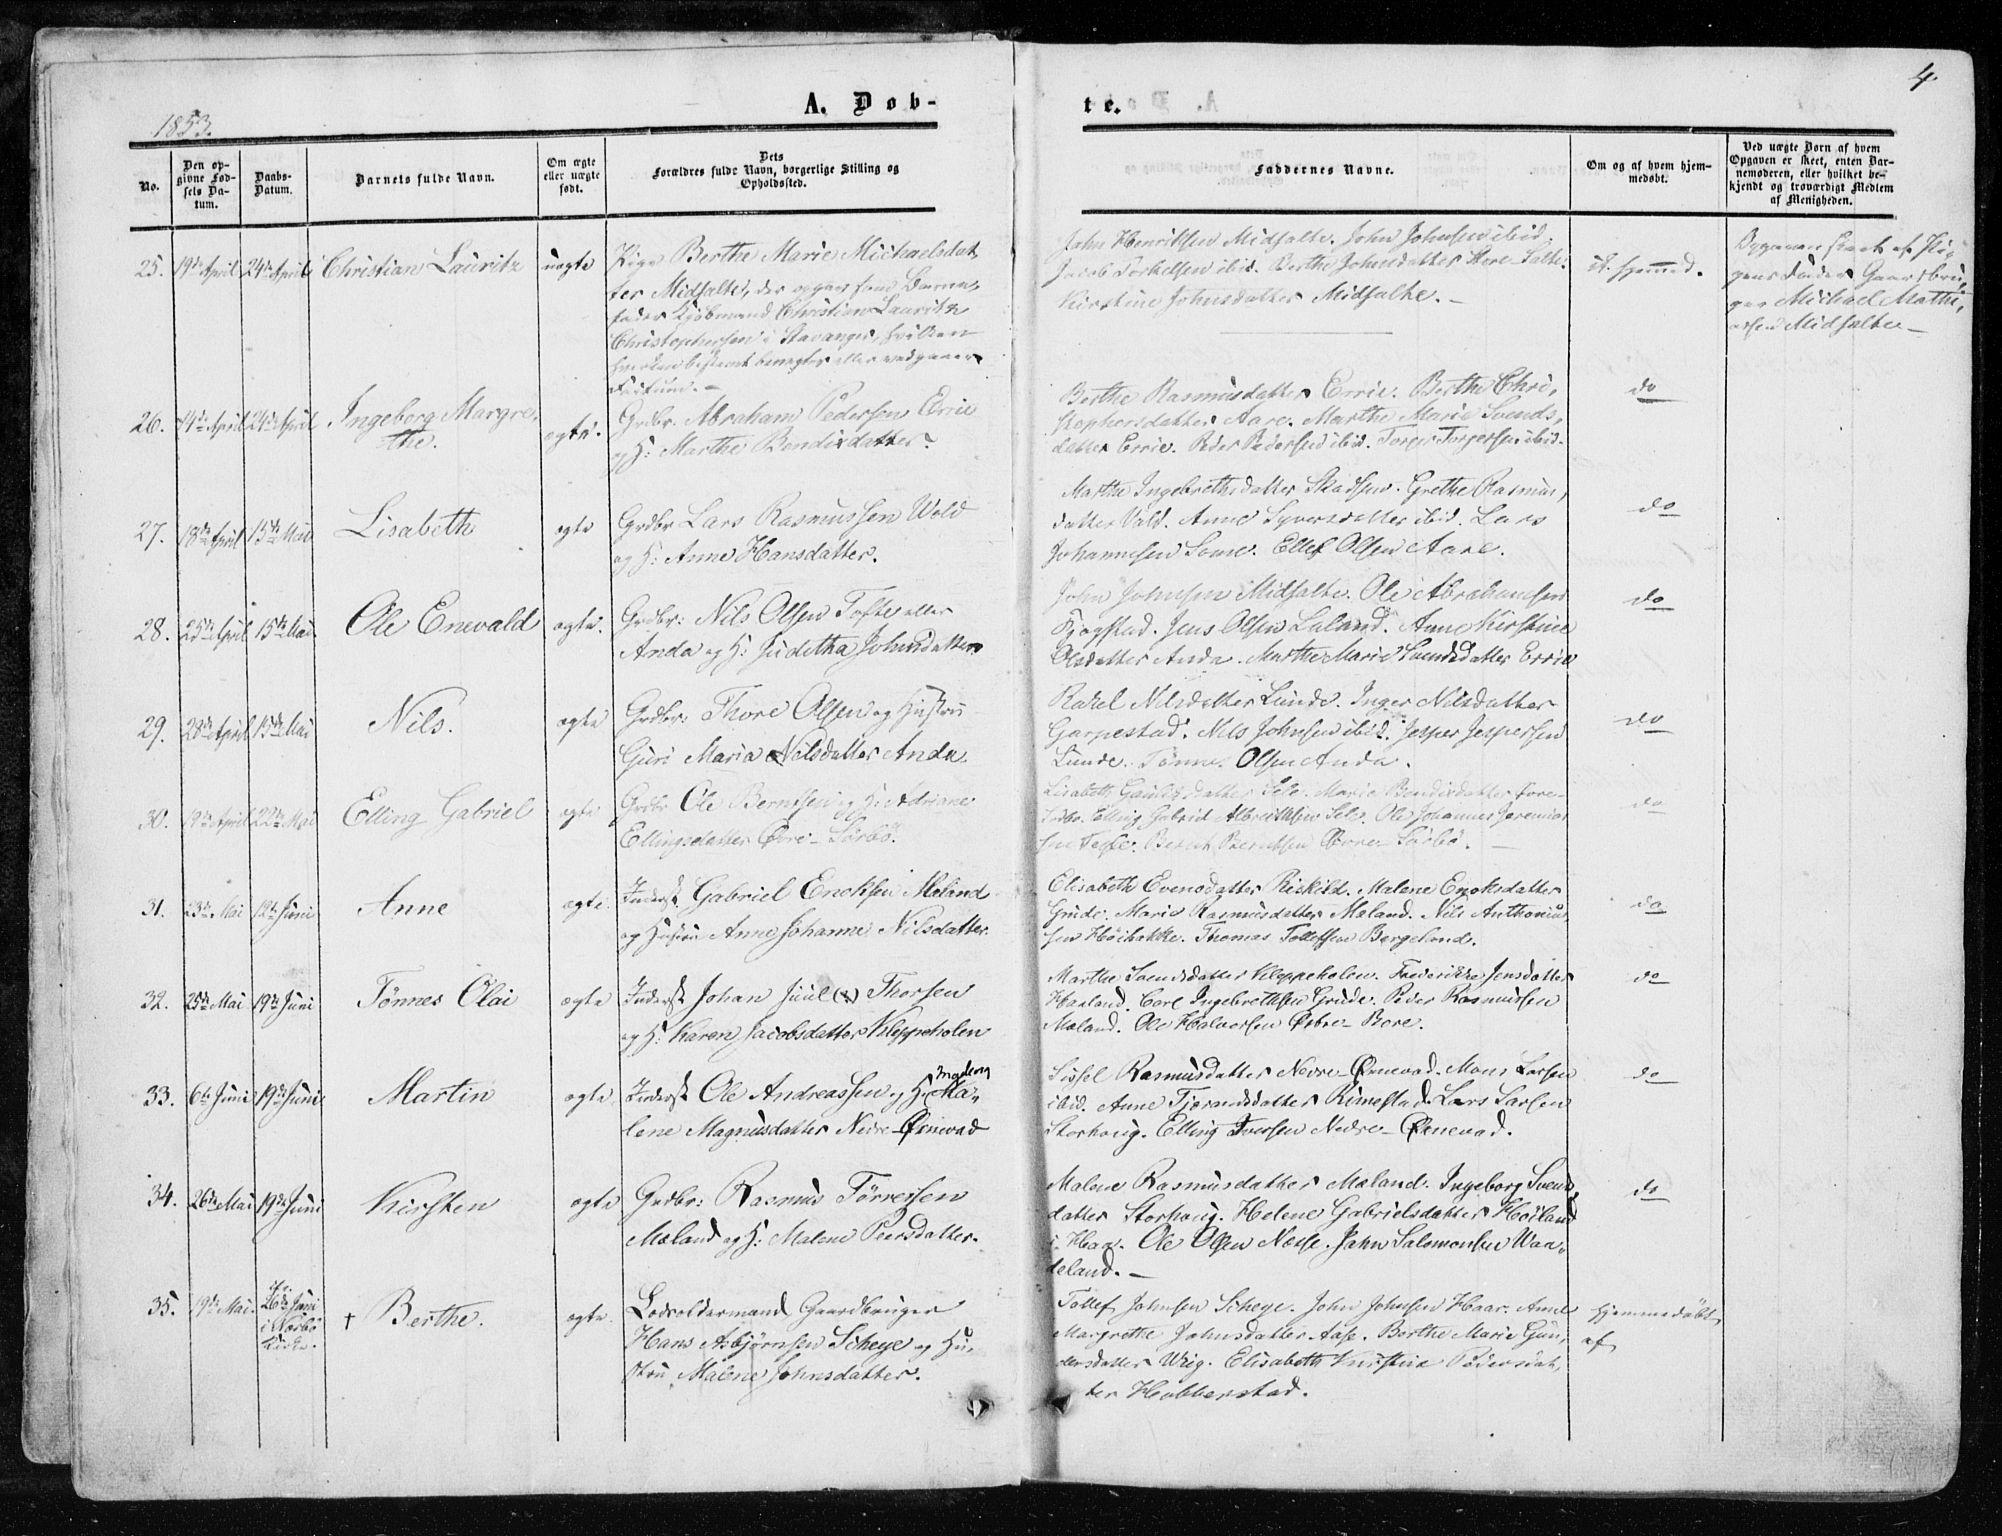 4.
1853.
A. Døb-
te.
No.
Den op-
givne Fød-
sels Da-
tum.
Daabs-
Datum.
Barnets fulde Navn.
Om ægte
eller uægte
født.
Dets
Forældres fulde Navn, borgerlige Stilling og
Opholdssted.
Faddernes Navne.
Om og af hvem hjem-
medøbt.
Ved uægte Børn af hvem
Opgaven er skeet, enten Bar-
nemoderen, eller hvilket be-
kjendt og troværdigt Medlem
af Menigheden.
25. 19de April 24de April Christian Lauritz uægte
Pige Berthe Marie Michaelsdat
ter Midsalte, der opgav som Barne
fader Kjøbmand Christian Lauritz
Christophersen i Stavanger, hvilken
hverken bestemt benegter eller vedgaaer
John Henriksen Midsalte. John Johnsen ibid.
Jacob Torkelsen ibid. Berthe Johnsdatter Salte.
Kirstine Johnsdatter Midsalte.
Opgaven skeet af Pi-
gens Fader Gaardbru-
ger Michael Mathi-
assen Midsalte
26. 14de April 24de April Ingeborg Margre-
the. ægte.
Grdbr. Abraham Pedersen Errie
og H: Marthe Bendixdatter.
Berthe Rasmusdatter Errie. Berthe Chri-
stophersdatter Aare. Marthe Marie Svends-
datter Errie. Peder Pedersen ibid. Torger Torgersen ibid.
do
27. 18de April 15de Mai Lisabeth ægte
Grdbr Lars Rasmussen Wold
og H: Anne Hansdatter.
Marthe Ingebrethsdatter Skadsem. Grethe Rasmus-
datter Vold. Anne Syversdatter ibid. Lars
Johannesen Some. Ellef Olsen Aare.
do
28. 25de April 15de Mai Ole Enevald ægte.
Grdbr: Nils Olsen Tofte eller
Anda og H: Juditha Johnsdatter
John Johnsen Midsalte. Ole Abrahamsen
Fjogstad. Jens Olsen Laland. Anne Kirstine
Olsdatter Anda. Marthe Marie Svendsdatter Errie
do
29. 28de April 15de Mai Nils. ægte
Grdbr: Thore Olsen og Hustru
Guri Maria Nilsdatter Anda.
Rakel Nilsdatter Lunde. Inger Nilsdatter
Garpestad. Nils Johnsen ibid. Jesper Jespersen
Lunde. Tønnes Olsen Anda.
do
30. 19de April 22de Mai Elling Gabriel ægte
Grdbr Ole Berntsen og H: Adriane
Ellingsdatter Øvre-Sørbø.
Lisabeth datter Sele. Marie Bendixdatter Øvre-
Sørbø. Elling Gabriel Albrethsen Sele. Ole Johannes Jeremias
sen Berent Berntsen Øvre Sørbø.
do
31. 23de Mai 12te Juni Anne ægte.
Inderst Gabriel Enoksen Meland
og Hustru Anne Johanne Nilsdatter.
Elisabeth Evensdatter Riskild. Malene Enoksdatter
Grude. Marie Rasmusdatter Meland. Nils Anthonius
sen Høihakke. Thomas Tollefsen Bergeland.
do
32. 25de Mai 19de Juni Tønnes Olai ægte
Inderst Johan Juul Thorsen
og H: Karen Jacobsdatter Kleppeholen
Marthe Svendsdatter Kleppeholen. Frederikke Jensdatter
Haaland. Carl Ingebrethsen Grude. Peder Rasmussen
Meland. Ole Halvorsen Østre-Bore.
do
33. 6te Juni 19de Juni Martin ægte
Inderst Ole Andreassen og H: Magdena
Ma-
lene Magnusdatter Nedre-Ørnevad
Sissel Rasmusdatter Nedre-Ørnevad. Mons Larsen
ibid. Anne Tjerandsdatter Rimestad. Lars Larsen
Storhoug. Elling Iversen Nedre-Ørnevad.
do
34. 26de Mai 19de Juni Kirsten ægte
Grdbr: Rasmus Tørresen
Meland og H: Malene Peersdatter.
Malene Rasmusdatter Meland. Ingeborg Svens
datter Storhoug. Helene Gabrielsdatter Høiland
i Haa. Ole Olsen Næsse. John Salomonsen Waa-
deland.
do
35. 19de Mai. 26de Juni
i Nærbø
Kirke. † Berthe. ægte.
Lodsoldermand Gaardbruger
Hans Asbjørnsen Scheye og Hu-
stru Malene Johnsdatter.
Tollef Johnsen Scheye. John Johnsen Haar. Anne
Margrethe Johnsdatter Aase. Berthe Marie Gun-
dersdatter Wiig. Elisabeth Kirstine Pedersdat-
ter Hobberstad.
Hjemmedøbt
af